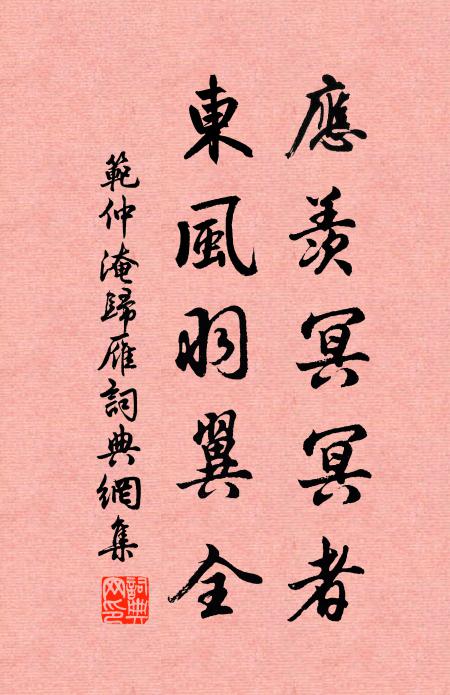 應羨冥冥者
東風羽翼全
範仲淹歸雁詞典網集